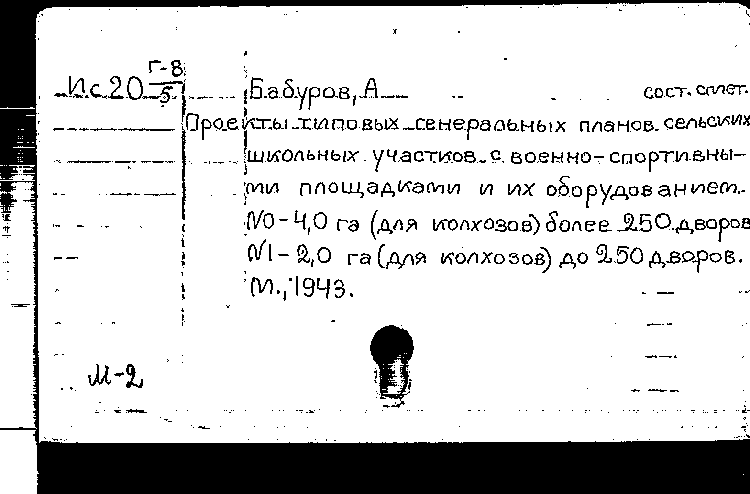 Ис20 Г-8/5
Бабуров, А сост.
Проекты типовых генеральных планов сельских
школьных участков с военно-спортивны-
ми площадками и их оборудованием.
N0-4,0 га (для колхозов) более 250 дворов
N1-2,0 га (для колхозов) до 250 дворов.
М., 1943.
М-2